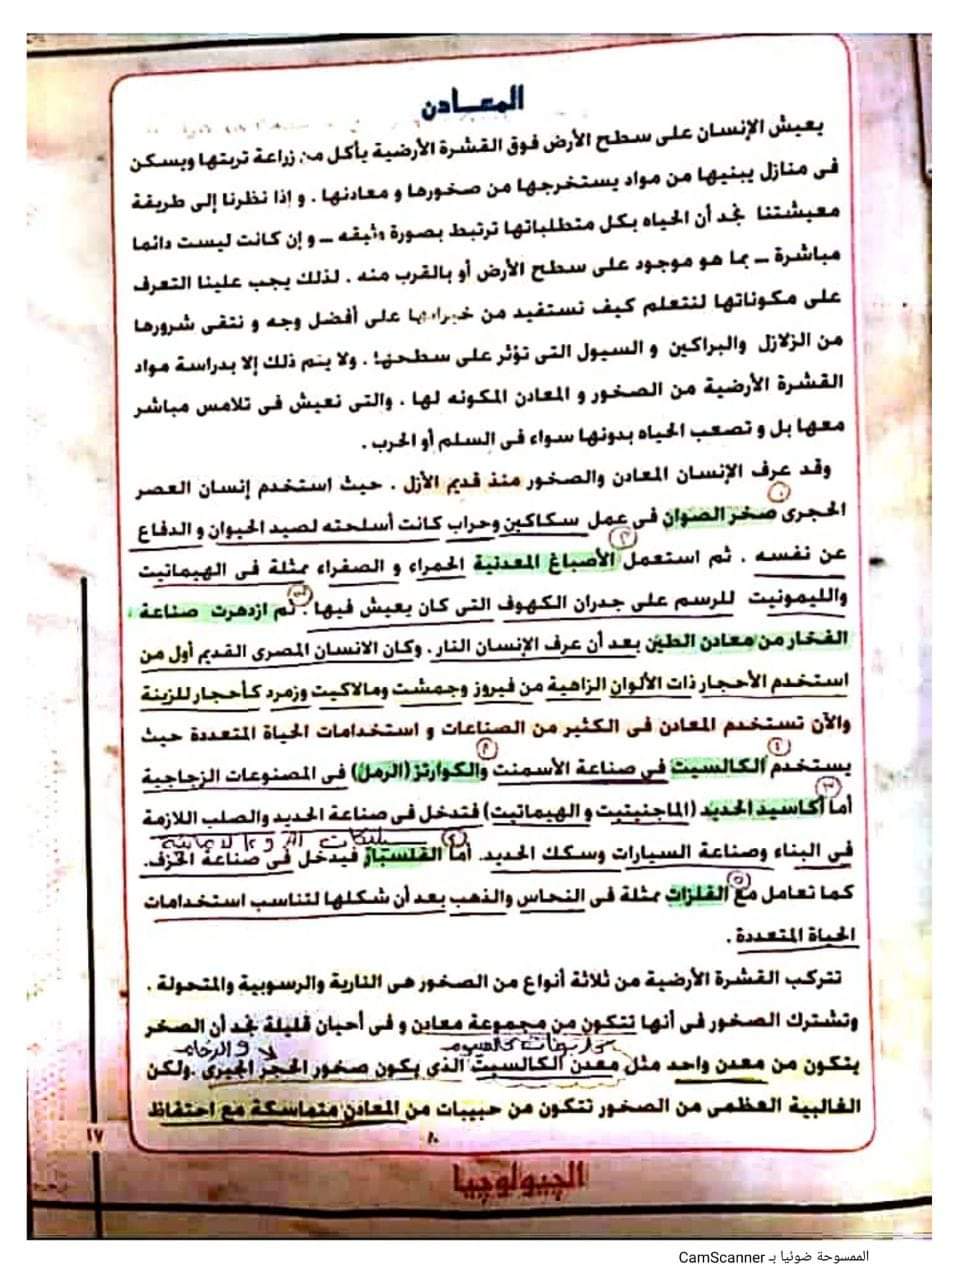 المعادن
يعيش الإنسان على سطح الأرض فوق القشرة الأرضية يأكل من زراعة تربتها ويسكن
فى منازل يبنيها من مواد يستخرجها من صخورها و معادنها . و إذا نظرنا إلى طريقة
معيشتنا نجد أن الحياه بكل متطلباتها ترتبط بصورة وثيقه – و إن كانت ليست دائما
مباشرة – بما هو موجود على سطح الأرض أو بالقرب منه . لذلك يجب علينا التعرف
على مكوناتها لنتعلم كيف نستفيد من خيراتها على أفضل وجه و نتقى شرورها
من الزلازل والبراكين و السيول التى تؤثر على سطحها . ولا يتم ذلك إلا بدراسة مواد
القشرة الأرضية من الصخور و المعادن المكونه لها . والتى نعيش فى تلامس مباشر
معها بل و تصعب الحياه بدونها سواء فى السلم أو الحرب .
وقد عرف الإنسان المعادن والصخور منذ قديم الأزل . حيث استخدم إنسان العصر
١
الحجرى صخر الصوان فى عمل سكاكين وحراب كانت أسلحته لصيد الحيوان و الدفاع
٢
عن نفسه . ثم استعمل الأصباغ المعدنية الحمراء و الصفراء ممثلة فى الهيماتيت
٣
والليمونيت للرسم على جدران الكهوف التى كان يعيش فيها . ثم ازدهرت صناعة
الفخار من معادن الطين بعد أن عرف الإنسان النار . وكان الانسان المصرى القديم أول من
استخدم الأحجار ذات الألوان الزاهية من فيروز وجمشت ومالاكيت وزمرد كأحجار للزينة
والآن تستخدم المعادن فى الكثير من الصناعات و استخدامات الحياة المتعددة حيث
١ ٢
يستخدم الكالسيت فى صناعة الأسمنت والكوارتز (الرمل) فى المصنوعات الزجاجية
٣
أما أكاسيد الحديد (الماجنيتيت و الهيماتيت) فتدخل فى صناعة الحديد والصلب اللازمة
٤ سليكات
فى البناء وصناعة السيارات وسكك الحديد. أما الفلسبار فيدخل فى صناعة الخزف.
٥
كما تعامل مع الفلزات ممثلة فى النحاس والذهب بعد أن شكلها لتناسب استخدامات
الحياة المتعددة .
تتركب القشرة الأرضية من ثلاثة أنواع من الصخور هى النارية والرسوبية والمتحولة .
وتشترك الصخور فى أنها تتكون من مجموعة معادن و فى أحيان قليلة نجد أن الصخر
كربونات كالسيوم والرخام
يتكون من معدن واحد مثل معدن الكالسيت الذى يكون صخور الحجر الجيرى .ولكن
الغالبية العظمى من الصخور تتكون من حبيبات من المعادن متماسكة مع احتفاظ
١٧
الجيولوچيا
الممسوحة ضوئيا بـ CamScanner